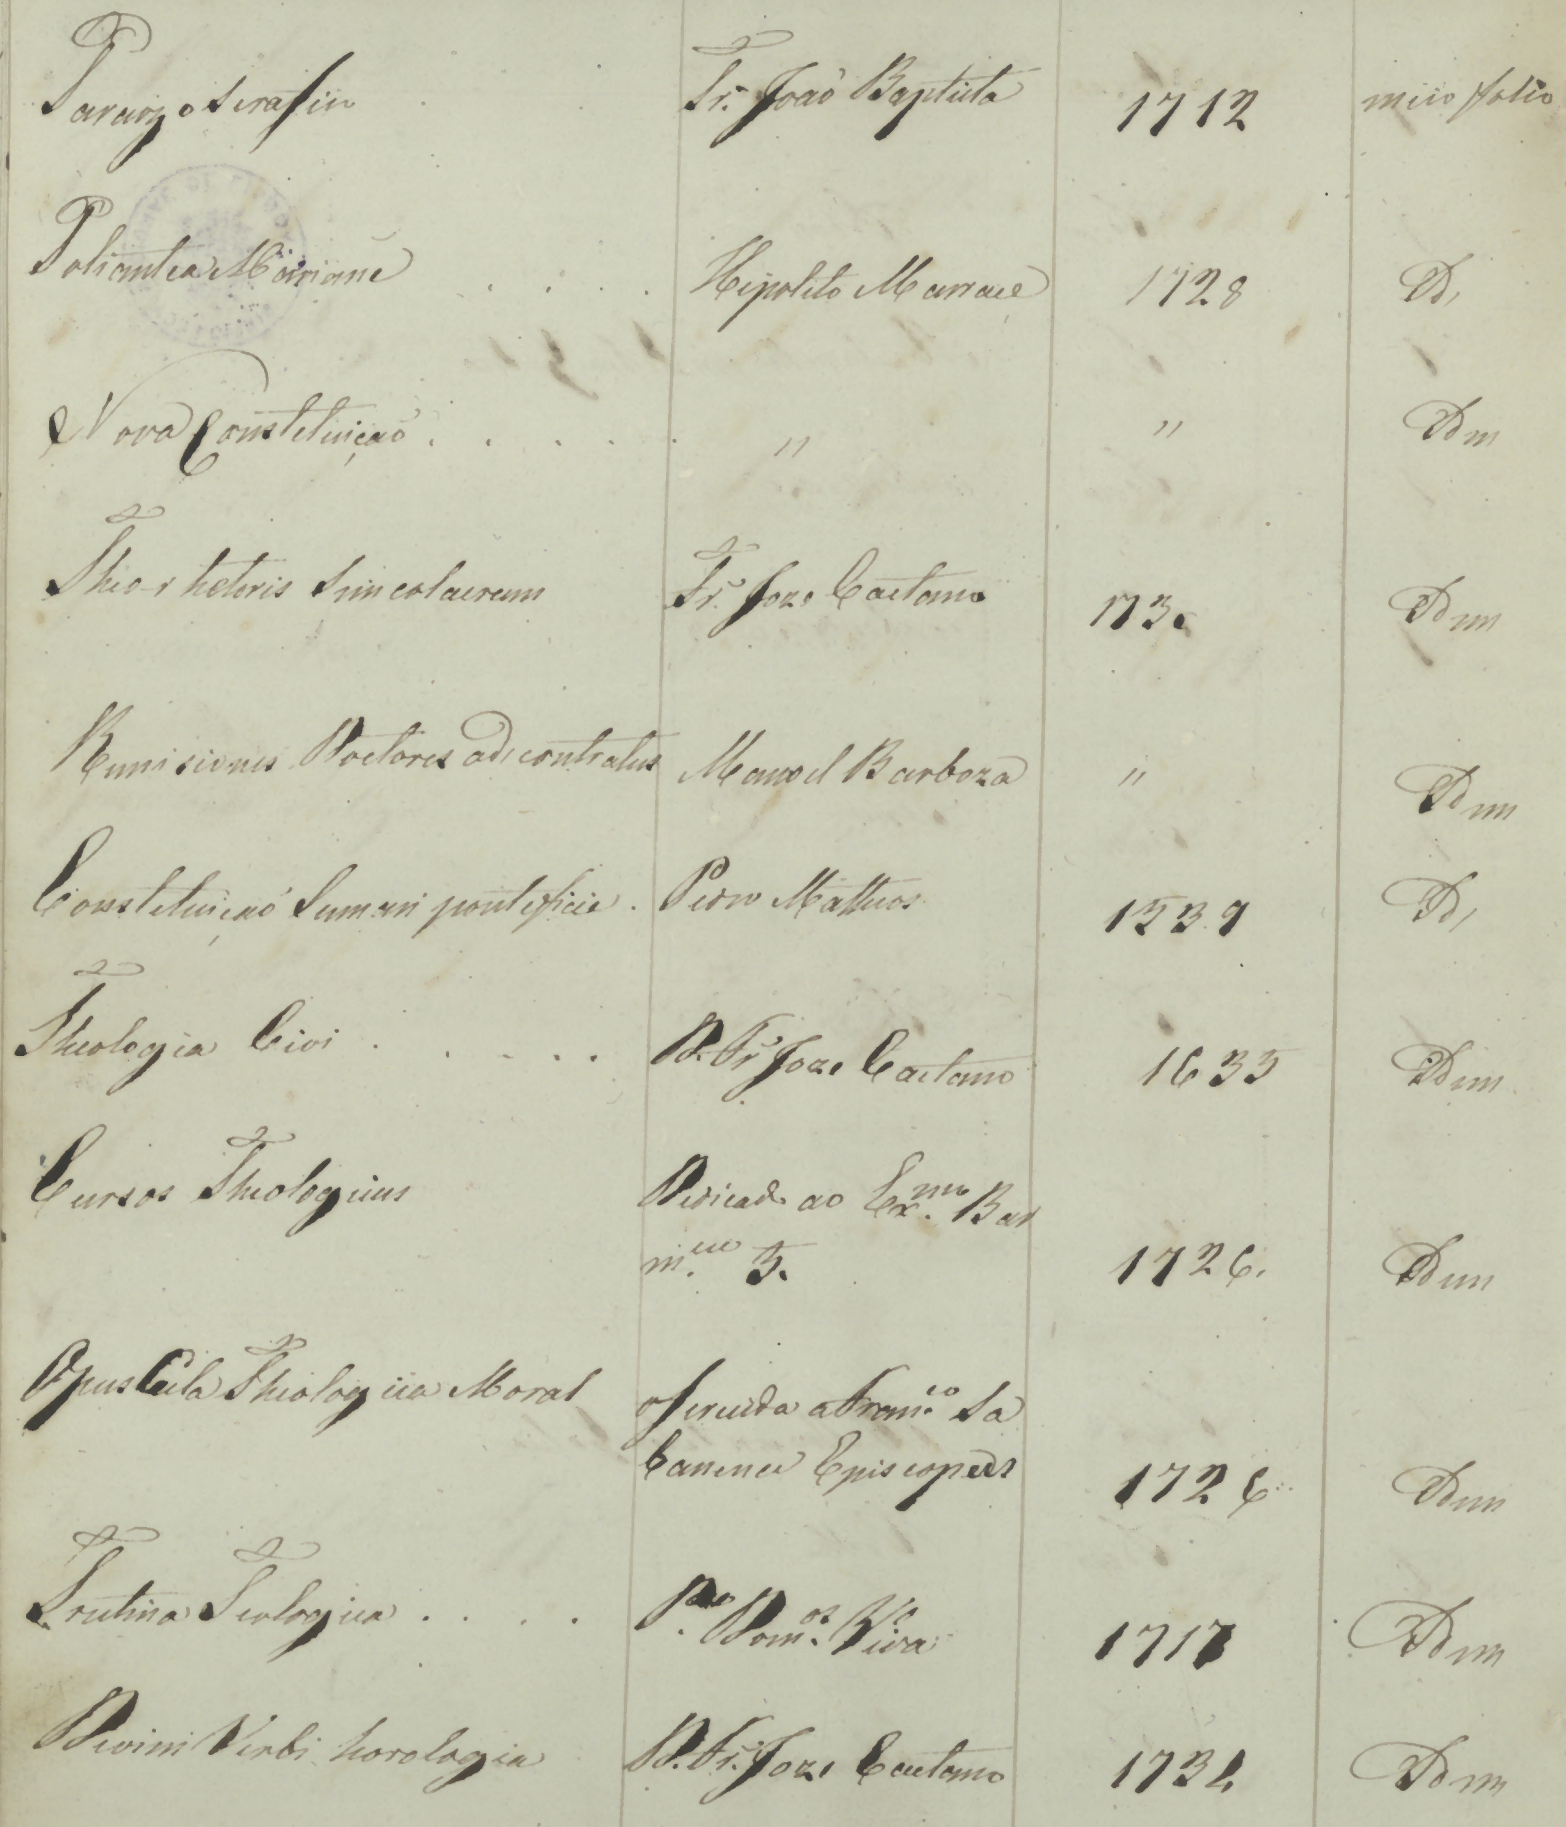 Paraizo Serafin Fr. João Baptista 1712 meio folio
Poliantea Mariane . . . . Hipolito Marrace 1728 Id,
Nova Constetuição . . . . . " " Idm
Theo-rhetoris Fr. Joze Caetano 173. Idm
Remisiones Doctores ad contratus Manoel Barboza " Idm
Constetuição Sumari ponteficie . Pedro Matheos 1539 Id,
Theologia Civi . . . . . D. Fr. Joze Caetano 1635 Idm
Cursos Theologicus Dedicado ao Exmo. Bar
m.eu 5. 1726. Idm
Opuscula Theologiia Moral oferecida a Franco. Sa
Canence Episcopeos 1726 Idm
Trutina Teologica . . . . Pe. Domos. Viva 1717 Idm
Devini Verbi horologia D. Fr. Joze Caetano 1732 Idm